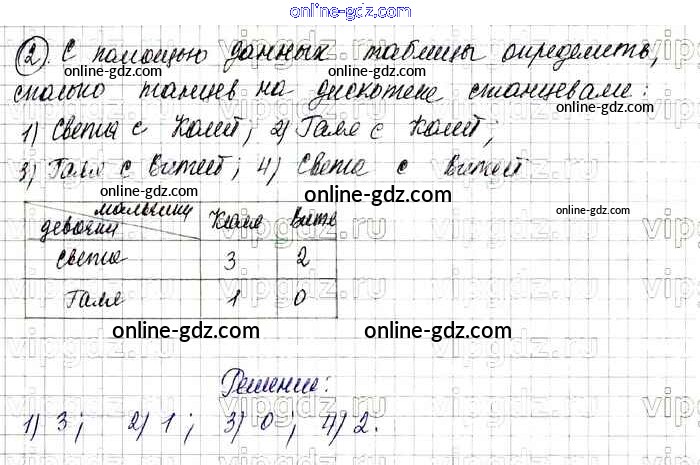 online-gdz.com
2. С помощью данных таблицы определить,
online-gdz.com online-gdz.com
сколько танцев на дискотеке станцевали:
online-gdz.com
1) Света с Колей; 2) Галя с Колей;
3) Галя с Витей; 4) Света с Витей
online-gdz.com
online-gdz.com
мальчики
девочки Коля Витя
online-gdz.com
Света 3 2
online-gdz.com
Галя 1 0
online-gdz.com online-gdz.com
Решение:
1) 3; 2) 1; 3) 0; 4) 2.